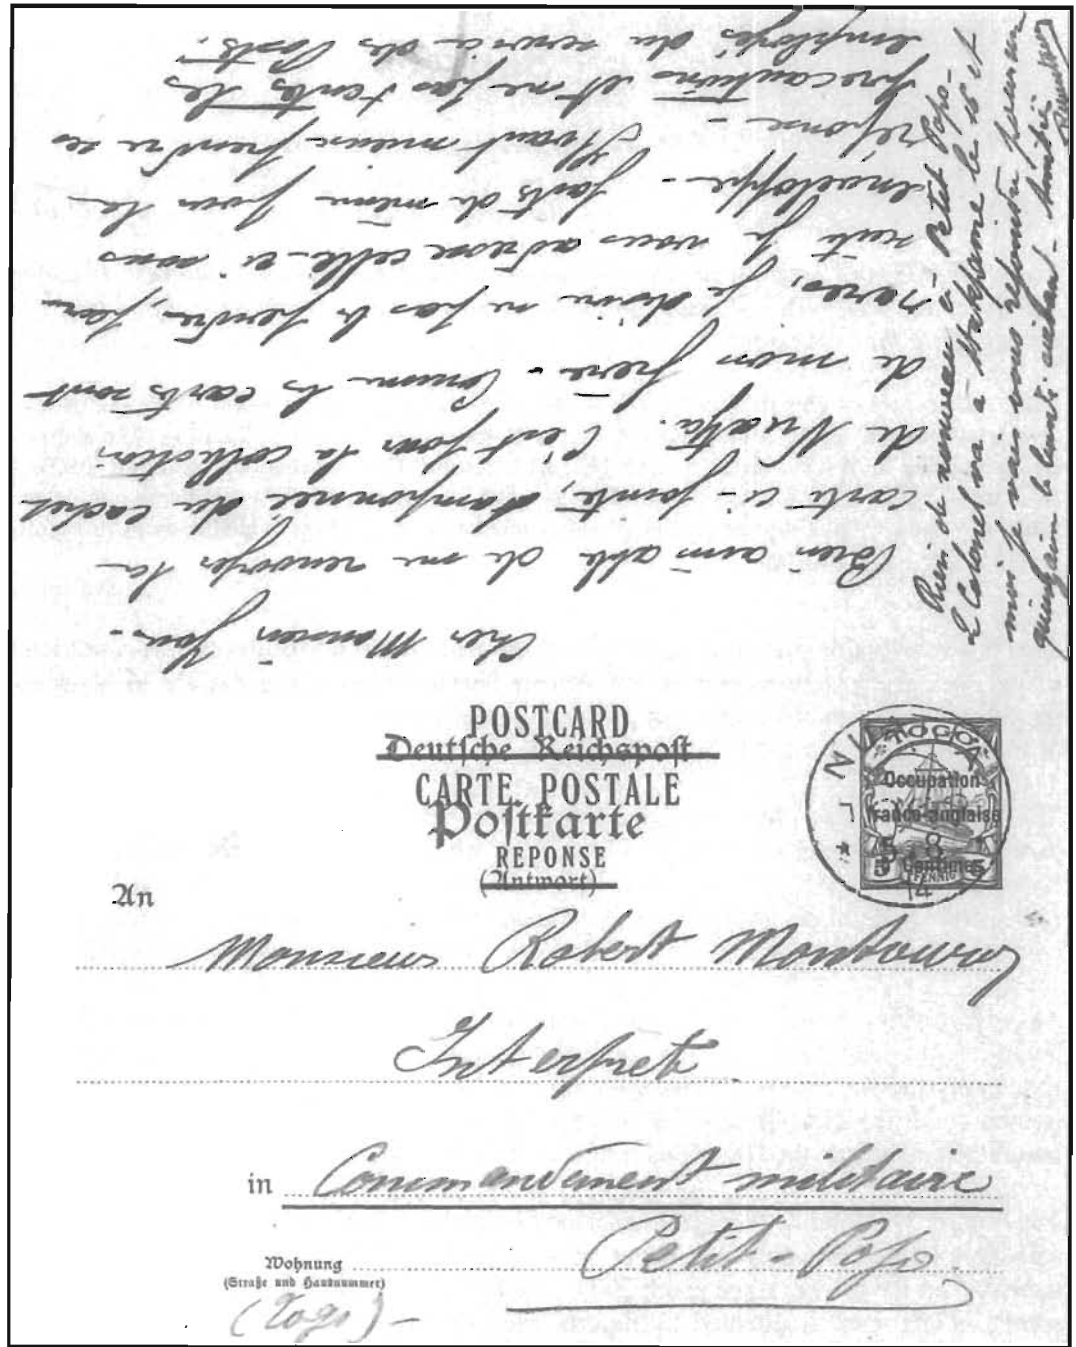 Cher Monsieur You.-
Bien aimable de me renvoyer la
carte ci-jointe, tamponnée du cachet
de Nuatja. C'est pour la collection
de mon frère - Comme les cartes sont
rares, je désire ne pas la perdre, par
suite je vous adresse celle-ci sous
enveloppe - faites de même pour la
réponse - Il vaut mieux prendre ces
précautions et ne pas tenter les
employés du service des Postes.
Rien de nouveau à Petit Popo-
Le Colonel ira à Atakpamé le 15 et
moi je vais vous répondre pour une
quinzaine le lundi suivant - Amitiés
POSTCARD
Deutsche Reichspost
CARTE POSTALE
Postkarte
REPONSE
(Antwort)
TOGO
Occupation
franco-anglaise
5 Centimes
PFENNIG
NUATJA
5 8
14
An
Monsieur Robert
Interprete
in Commandement militaire
Petit-Popo
Wohnung
(Straße und Hausnummer)
(Togo) -